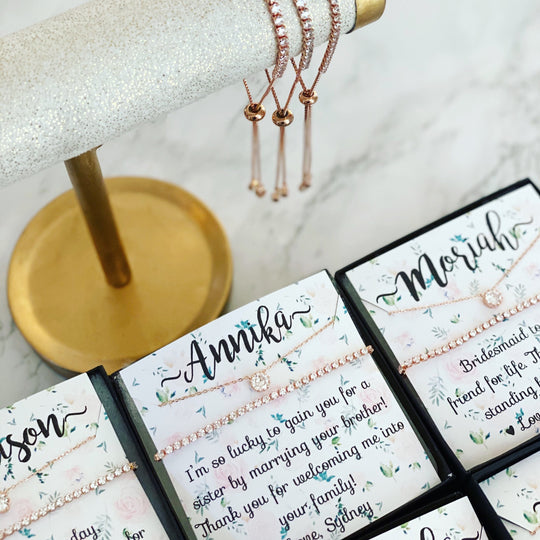 Annika
I'm so lucky to gain you for a
sister by marrying your brother!
Thank you for welcoming me into
your family!
Love, Sydney
Moriah
Bridesmaid to
friend for life. Th
standing b
♥ Lov
son
day
for